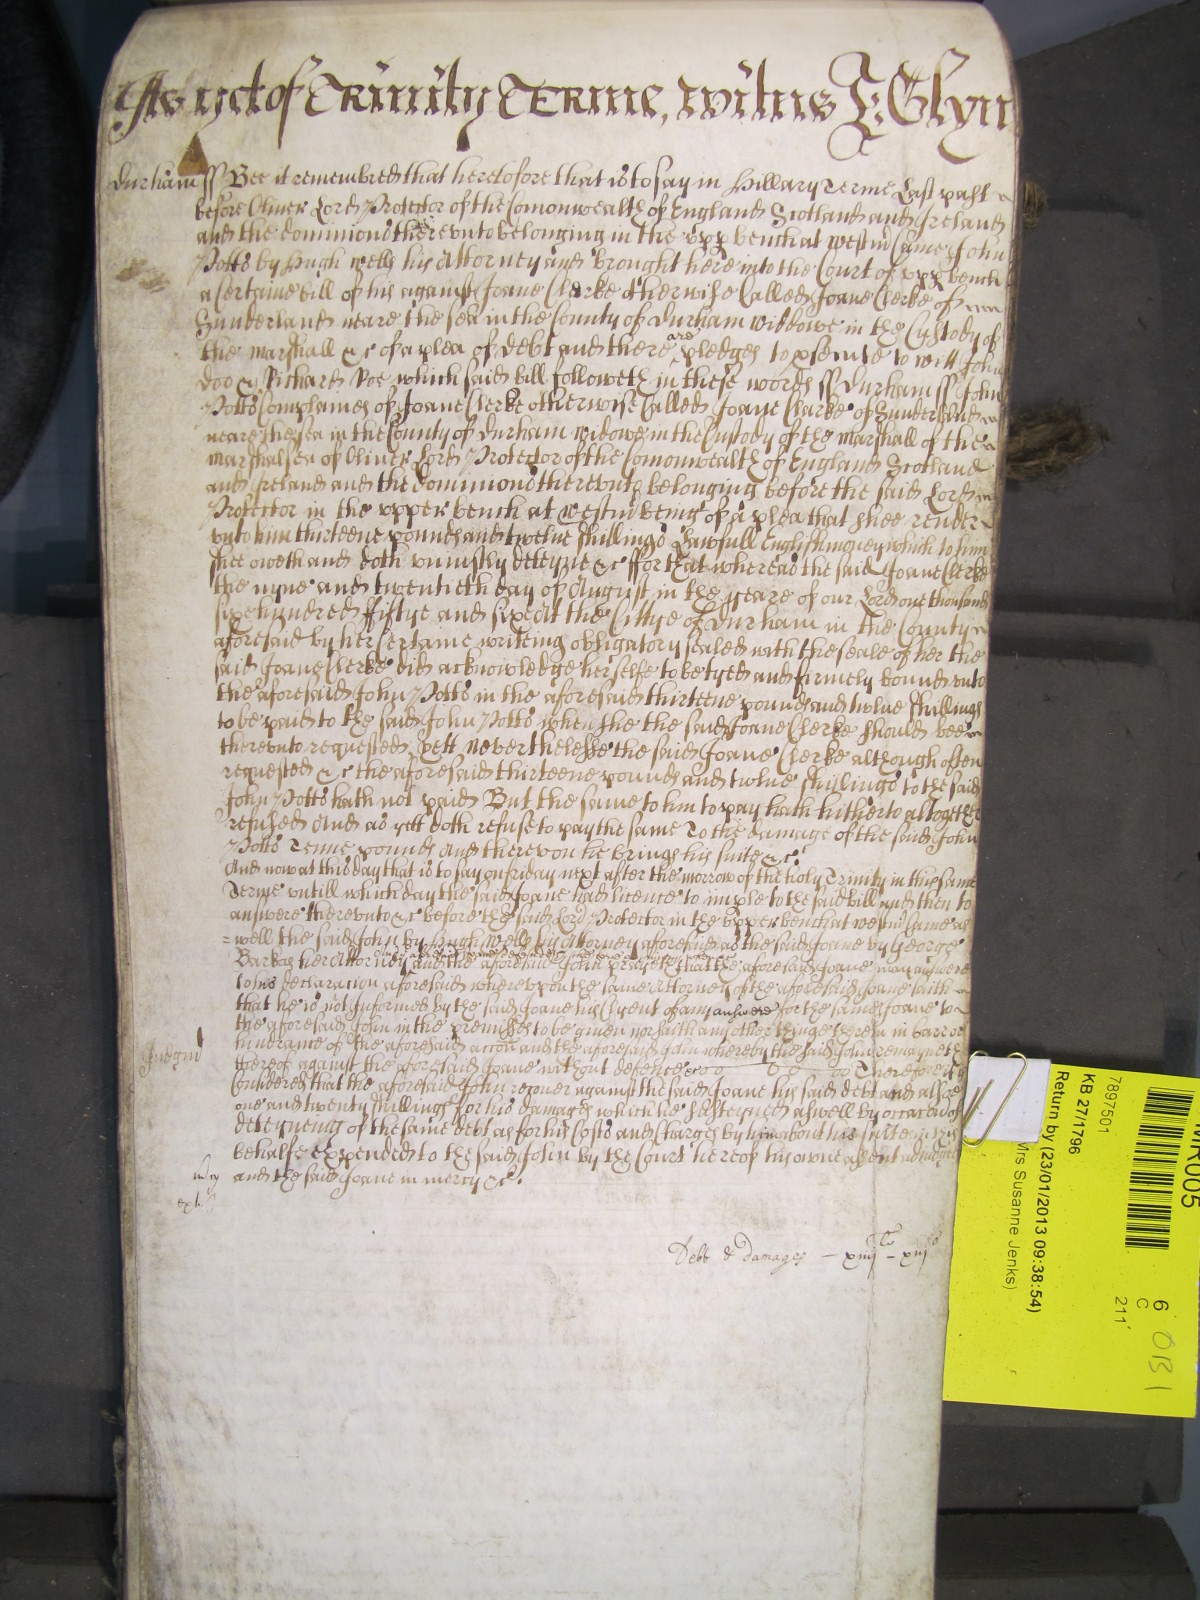 As yet of Trinity Terme, witnes J: Glyn
Durham ss Bee it remembred that heretofore that is to say in Hillary Terme Last past
before Oliver Lord Protector of the Comonwealth of England Scotland and Ireland
and the dominions therevnto belonging in the vpp bench at westm Came John
Potts by Hugh Wells his Attorney and brought here into the Court of vpp bench
a Certaine bill of his against Joane Clerke otherwise Called Joane Clerke of
Sunderland neare the sea in the County of Durham widdowe in the Custody of
the marshall &c of a plea of debt and there are pledges to psecute to witt John
Doo & Richard Roe which said bill followeth in these words ss Durham ss John
Potts Complaines of Joane Clerke otherwise Called Joane Clarke of Sunderland
neare the sea in the County of Durham widowe in the Custody of the marshall of the
marshalsea of Oliver Lord Protector of the Comonwealth of England Scotland
and Ireland and the dominions therevnto belonging before the said Lord
Protector in the vpper bench at westm being of a plea that shee render
vnto him thirteene pounds and twelve shillings Lawfull English money which to him
shee oweth and doth vniustly deteyne &c ffor that whereas the said Joane Clerke
the nyne and twentieth day of August in the yeare of our Lord one thousand
sixe hundred fiftye and sixe att the Cittye of Durham in the County
aforesaid by her Certaine writeing obligatory sealed with the seale of her the
said Joane Clerke did acknowledge herselfe to be tyed and firmely bound vnto
the aforesaid John Potts in the aforesaid thirteene pounds and twelue shillings
to be paid to the said John Potts when she the said Joane Clerke should bee
therevnto requested, yett neverthelesse the said Joane Clerke although often
requested &c the aforesaid thirteene pounds and twelue shillings to the said
John Potts hath not paid But the same to him to pay hath hitherto altogether
refused And as yett doth refuse to pay the same To the damage of the said John
Potts Tenne pounds And therevpon he brings his suite &c
And now at this day that is to say on friday next after the morrow of the holy Trinity in this same
Terme vntill which day the said Joane had licence to imple to the said bill and then to
answere therevnto &c before the said Lord Protector in the vpper bench at westm Came as
well the said John by Hugh Wells his Attorney aforesaid as the said Joane by George
Barkas her Attorney and the aforesaid John prayeth that the aforesaid Joane may answere
to his declaracion aforesaid wherevpon the same Attorney of the aforesaid Joane saith
that he is not Informed by the said Joane his Clyent of any answere for the same Joane to
the aforesaid John in the premisses to be given nor saith any other thinge therein in barr or
hinderance of the aforesaid accon and the aforesaid John whereby the said John remayneth
Judgmt thereof against the aforesaid Joane without defence &c Therefore it is
Considered that the aforesaid John recouer against the said Joane his said debt and alsoe
one and twenty shillings for his damages which he susteyned aswell by occacion of
deteyneing of the same debt as for his Costs and Charges by him about his suite in this
behalfe expended to the said John by the Court hereof his owne assent adiudged
and the said Joane in mercy &c
Debt & damages – xiiijli – xiijs
7897501
KB 27/1796
Return by (23/01/2013 09:38:54)
Mrs Susanne Jenks)
MR005
6
C
211
OBI